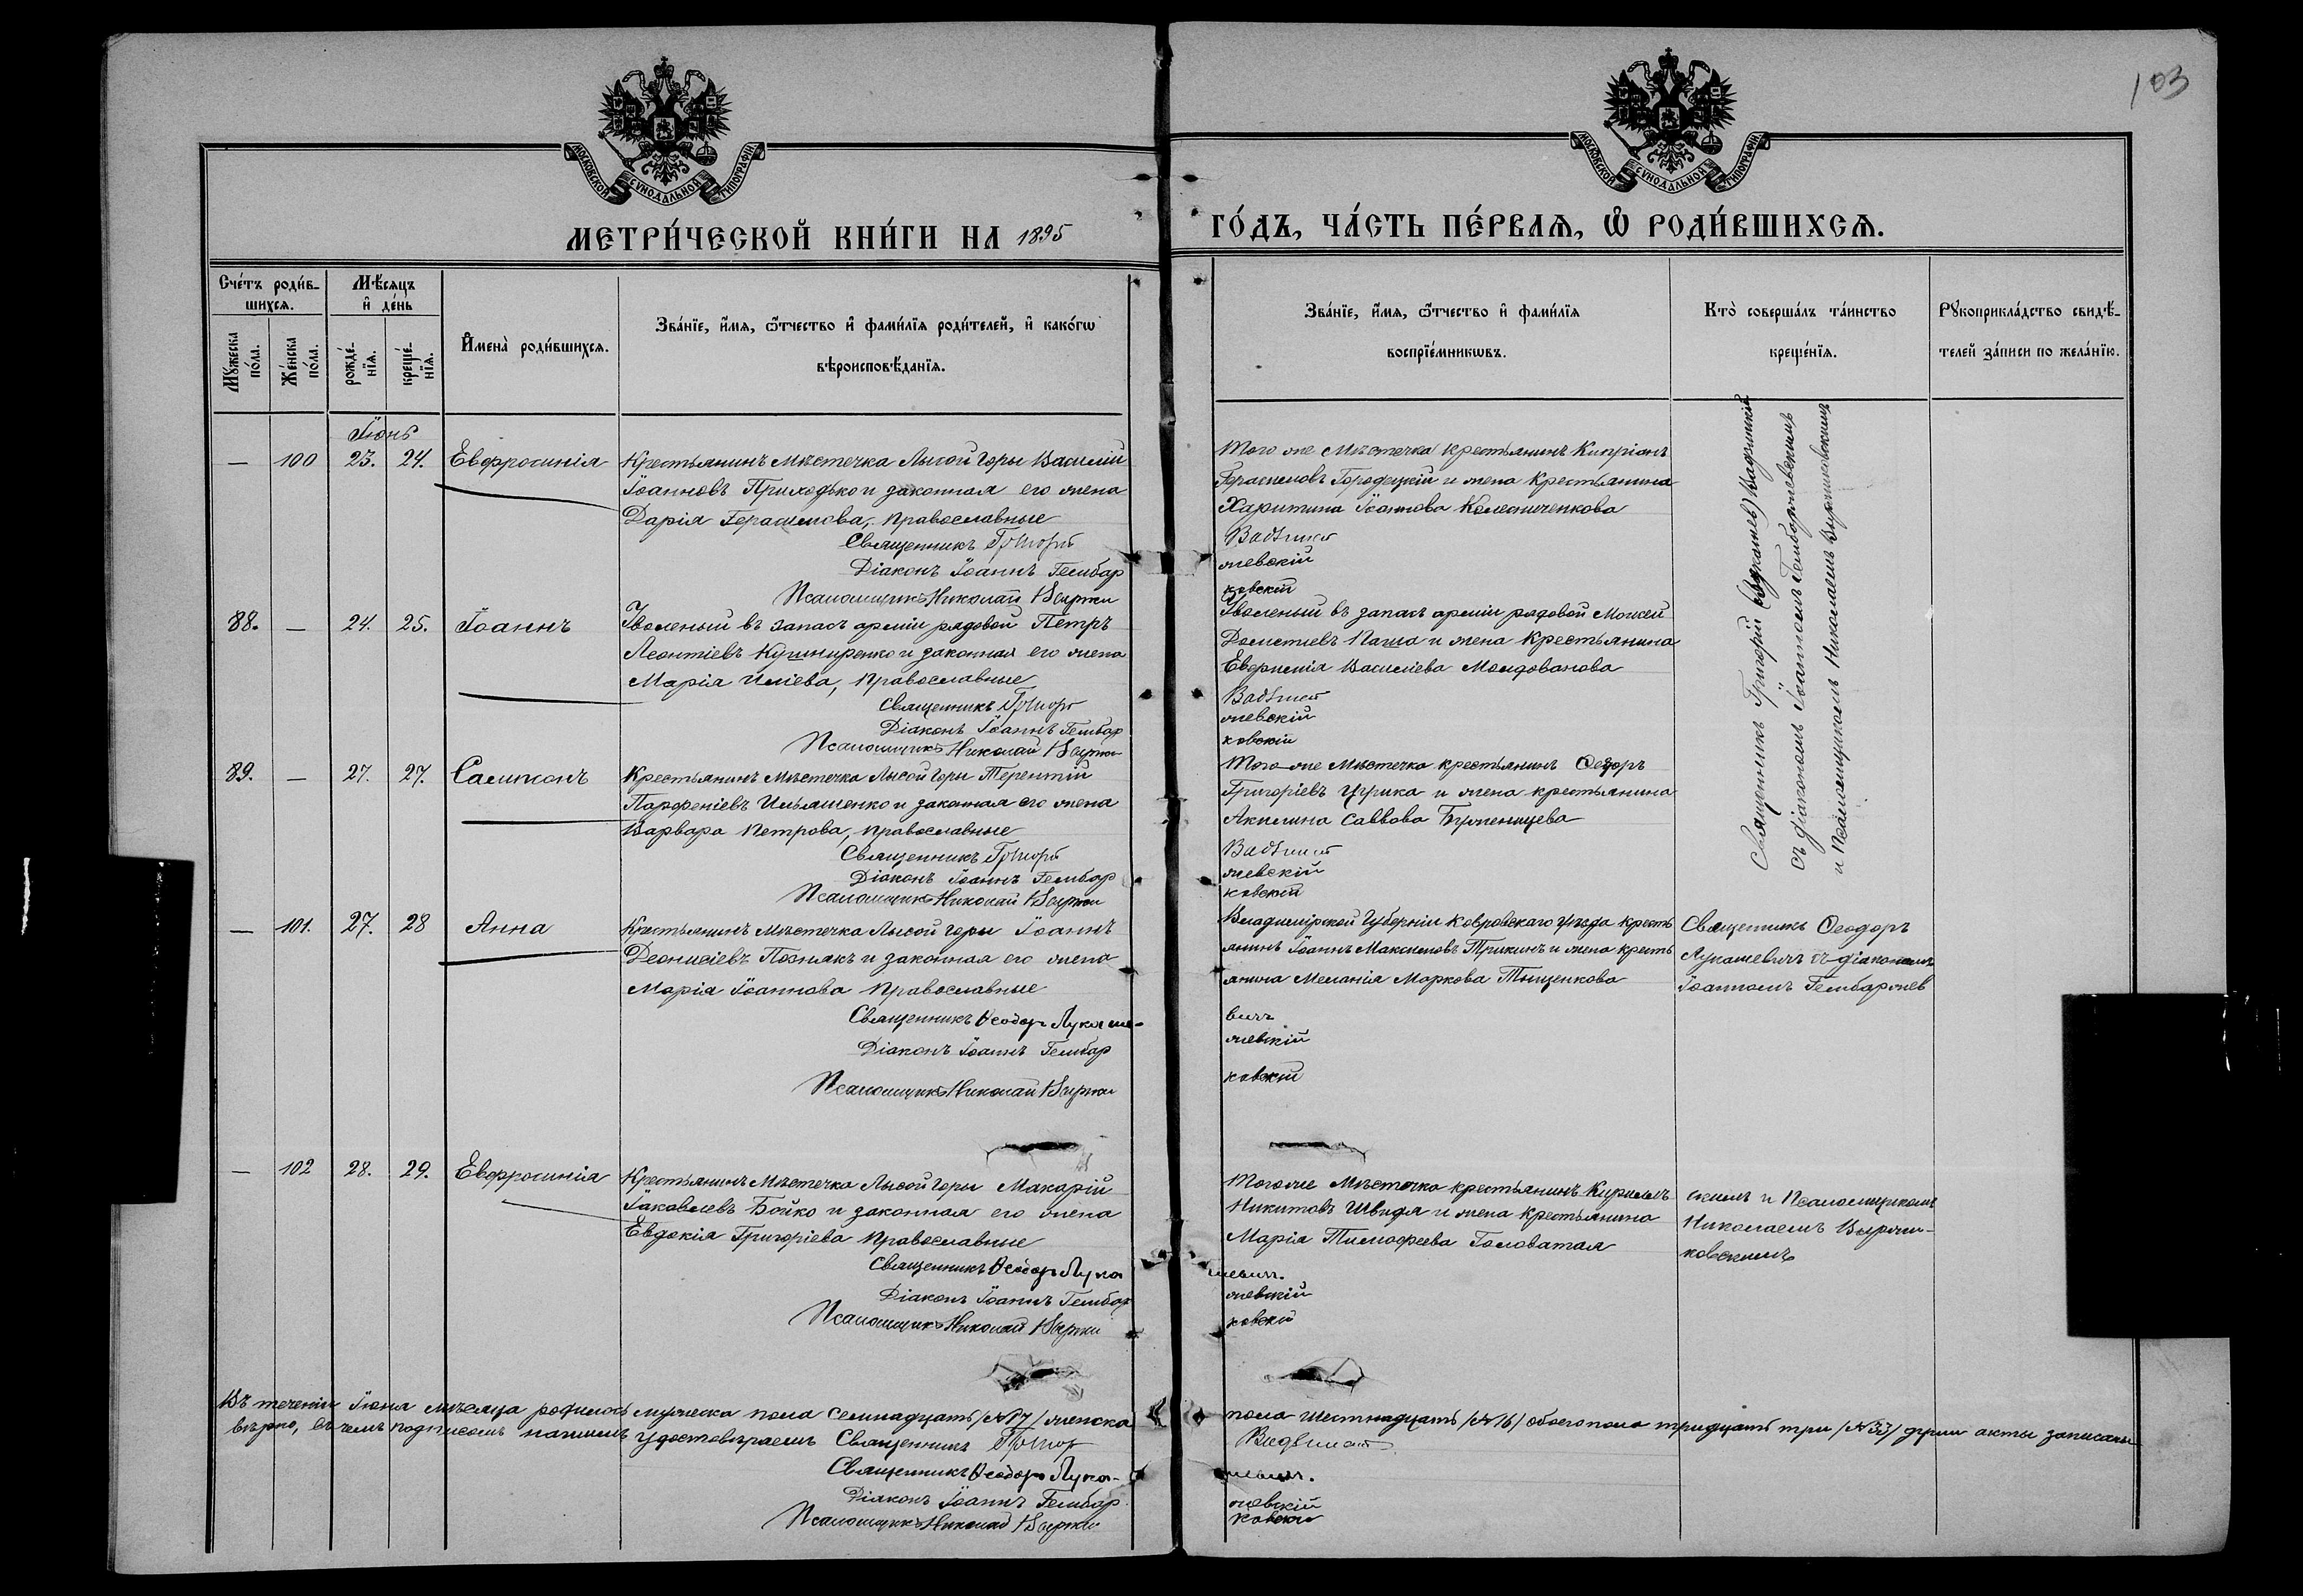 103
МОСКОВСКОЙ СѴНОДАЛЬНОЙ ТИПОГРАФІИ
МОСКОВСКОЙ СѴНОДАЛЬНОЙ ТИПОГРАФІИ
МЕТРИ́ЧЕСКОЙ КНИ́ГИ НА 1895 ГО́ДЪ, ЧА́СТЬ ПЕ́РВАЯ, Ѡ РОДИ́ВШИХСЯ.
Сче́тъ роди́в-
шихся.
Мѣ́сяцъ
и҆ де́нь
Мꙋ́жеска по́ла.
Же́нска по́ла.
рожде́-нїя.
креще́-нїя.
И҆мена̀ роди́вшихся.
Зва́нїе, и҆́мя, ѻ҆́тчество и҆ фами́лїя роди́телей, и҆ како́гѡ
вѣроисповѣ́данїя.
Зва́нїе, и҆́мя, ѻ҆́тчество и҆ фами́лїя
воспрїе́мникѡвъ.
Кто̀ соверша́лъ та́инство
креще́нїя.
Рꙋкоприкла́дство свидѣ́-
телей за́писи по жела́нїю.
Іюнь
— 100 23. 24. Евфросинія
Крестьянинъ Мѣстечка Лысой Горы Василій
Іоанновъ Приходько и законная его жена
Дарія Герасимова, Православные
Священникъ Григорій
Діаконъ Іоаннъ Гембар
Псаломщикъ Николай Выржи
Того же Мѣстечка крестьянинъ Кипріанъ
Герасимовъ Городецкій и жена Крестьянина
Харитина Іоаннова Колесниченкова
жевскій
ковскій
88. — 24. 25. Іоаннъ
Уволеный въ запасъ арміи рядовой Петръ
Леонтіевъ Кушниренко и законная его жена
Марія Иліева, Православные
Священникъ Григорій
Діаконъ Іоаннъ Гембар
Псаломщикъ Николай Выржи
Уволеный въ запасъ арміи рядовой Моисей
Дометіевъ Паша и жена Крестьянина
Евфимія Василіева Молдованова
жевскій
ковскій
89. — 27. 27. Сампсонъ
Крестьянинъ Мѣстечка Лысой Горы Терентій
Парфеніевъ Ильяшенко и законная его жена
Варвара Петрова, Православные
Священникъ Григорій
Діаконъ Іоаннъ Гембар
Псаломщикъ Николай Выржи
Того же Мѣстечка крестьянинъ Ѳеодоръ
Григоріевъ Цурика и жена крестьянина
Акилина Саввова
жевскій
ковскій
Священникъ Григорій
съ діакономъ Іоанномъ Гембаржевскимъ
и Псаломщикомъ Николаемъ Выржиковскимъ
— 101. 27. 28 Анна
Крестьянинъ Мѣстечка Лысой Горы Іоаннъ
Деонисіевъ Познякъ и законная его жена
Марія Іоаннова Православные
Священникъ Ѳеодоръ Лукаше-
Діаконъ Іоаннъ Гембар
Псаломщикъ Николай Выржи
Владимірской Губерніи Ковровскаго уѣзда кресть
янинъ Іоаннъ Максимовъ Трикинъ и жена кресть
янина Меланія Маркова Тыщенкова
вичъ
жевскій
ковскій
Священникъ Ѳеодоръ
Лукашевичъ съ діакономъ
Іоанномъ Гембаржев
— 102 28. 29. Евфросинія
Крестьянинъ Мѣстечка Лысой Горы Макарій
Іаковлевъ Бойко и законная его жена
Евдокія Григоріева Православные
Священникъ Ѳеодоръ Лука
Діаконъ Іоаннъ Гембар
Псаломщикъ Николай Выржи
Тогоже Мѣстечка крестьянинъ Кириллъ
Никитовъ Швидя и жена Крестьянина
Марія Тимофеева Головатая
шевичъ.
жевскій
ковскій
скимъ и Псаломщикомъ
Николаемъ Выржи-
ковскимъ
Въ теченіи Іюня мѣсяца родилось мужеска пола семнадцать /№17/ женска пола шестнадцать /№16/ обоего пола тридцать три /№33/ акты записаны
вѣрно, въ чемъ подписомъ нашимъ удостовѣряемъ Священникъ Григор
Священникъ Ѳеодоръ Лука- шевичъ.
Діаконъ Іоаннъ Гембар жевскій
Псаломщикъ Николай Выржи ковскій